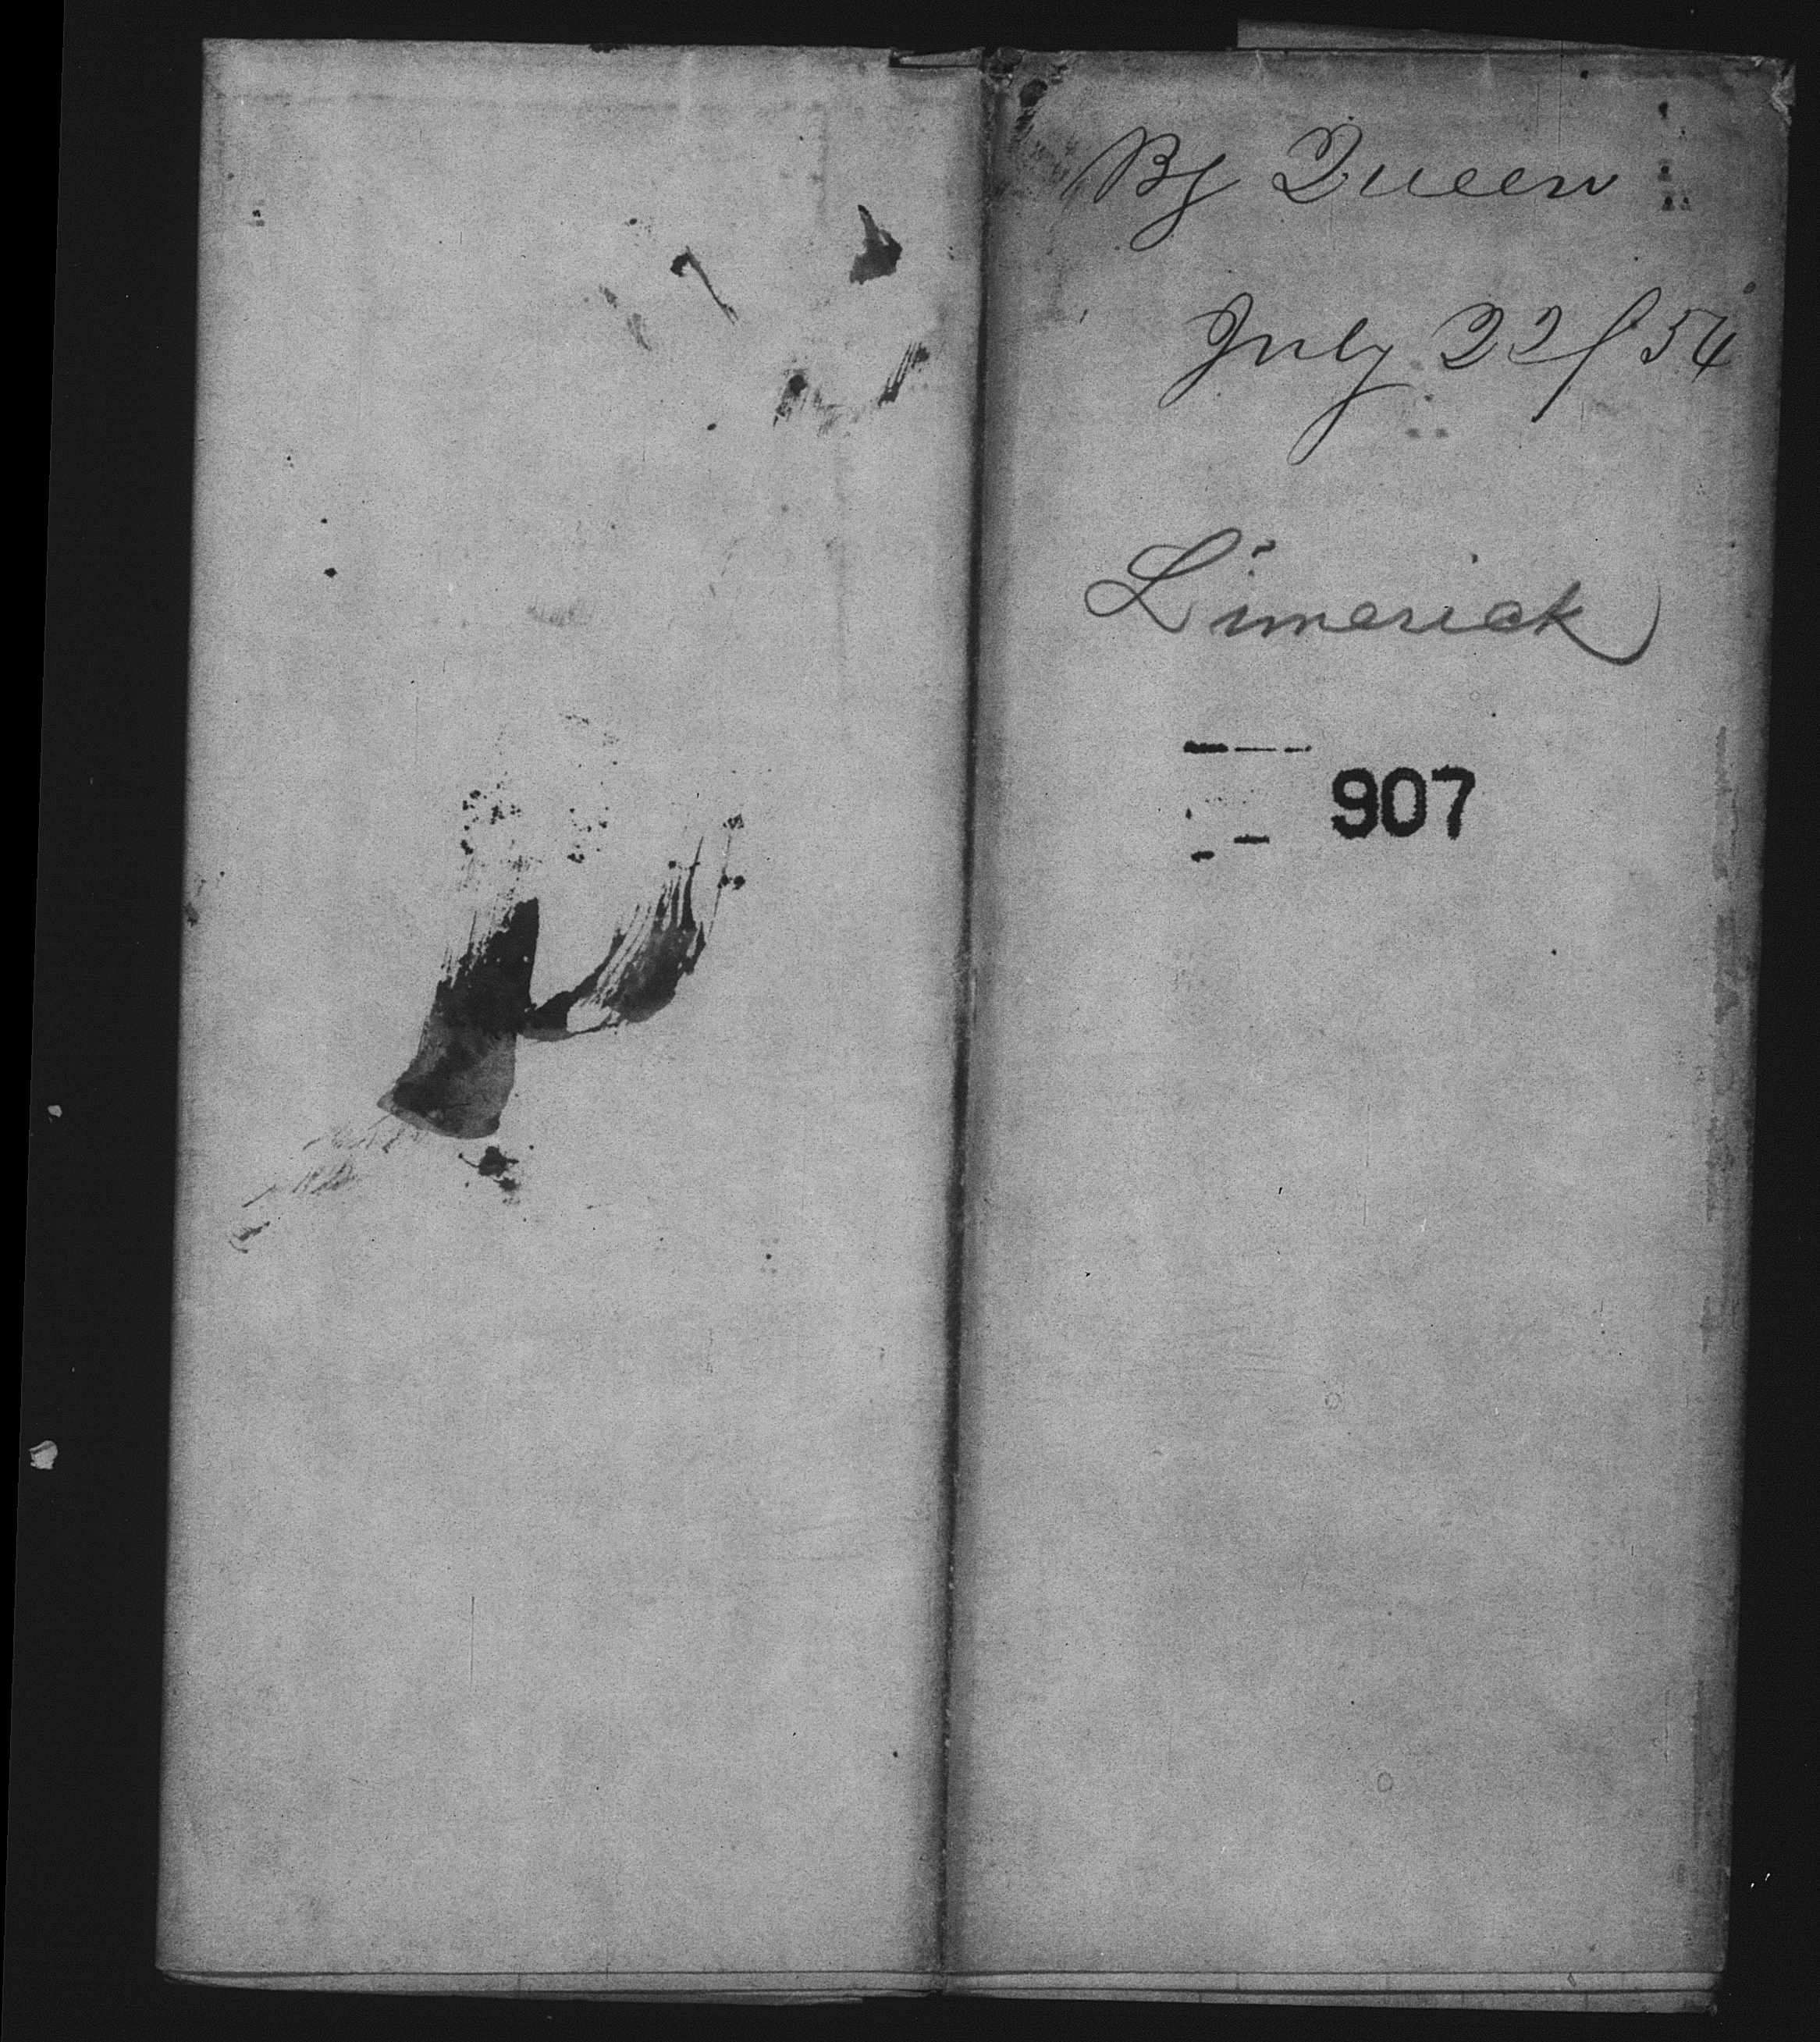 By Queen
July 22/54
Limerick
907